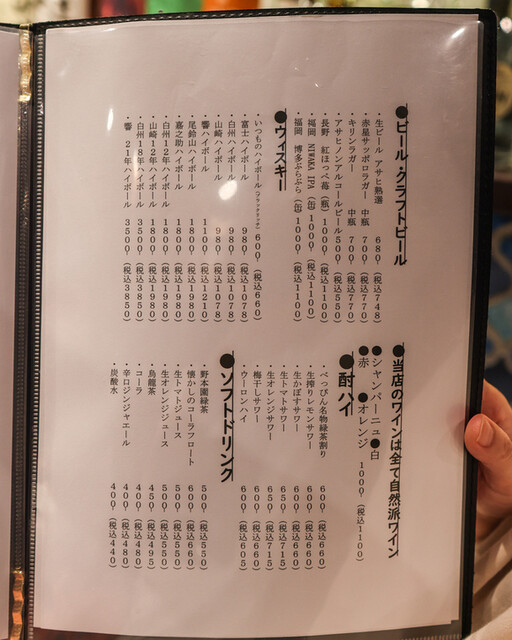 ●ビール・クラフトビール
・生ビール アサヒ熟選 680-(税込748)
・赤星サッポロラガー 中瓶 700-(税込770)
・キリンラガー 中瓶 700-(税込770)
・アサヒノンアルコールビール500-(税込550)
・長野 紅ほっぺ苺(瓶)1000-(税込1100)
・福岡 NIWAKA IPA(缶)1000-(税込1100)
・福岡 博多ぶらぶら(缶)1000-(税込1100)
●ウィスキー
・いつものハイボール(ブラックニッカ)600-(税込660)
・富士ハイボール 980-(税込1078)
・白州ハイボール 980-(税込1078)
・山崎ハイボール 980-(税込1078)
・響ハイボール 1100-(税込1210)
・尾鈴山ハイボール 1800-(税込1980)
・嘉之助ハイボール 1800-(税込1980)
・白州12年ハイボール 1800-(税込1980)
・山崎12年ハイボール 1800-(税込1980)
・白州18年ハイボール 3500-(税込3850)
・響 21年ハイボール 3500-(税込3850)
●当店のワインは全て自然派ワイン
●シャンパーニュ●白
●赤 ●オレンジ 1000-(税込1100)
●酎ハイ
・べっぴん名物緑茶割り 600-(税込660)
・生搾りレモンサワー 600-(税込660)
・生かぼすサワー 600-(税込660)
・生トマトサワー 650-(税込715)
・生オレンジサワー 650-(税込715)
・梅干しサワー 600-(税込660)
・ウーロンハイ 600-(税込605)
●ソフトドリンク
・野本園緑茶 500-(税込550)
・懐かしのコーラフロート 600-(税込660)
・生トマトジュース 500-(税込550)
・生オレンジジュース 500-(税込550)
・烏龍茶 450-(税込495)
・コーラ 400-(税込480)
・辛口ジンジャエール 400-(税込480)
・炭酸水 400-(税込440)